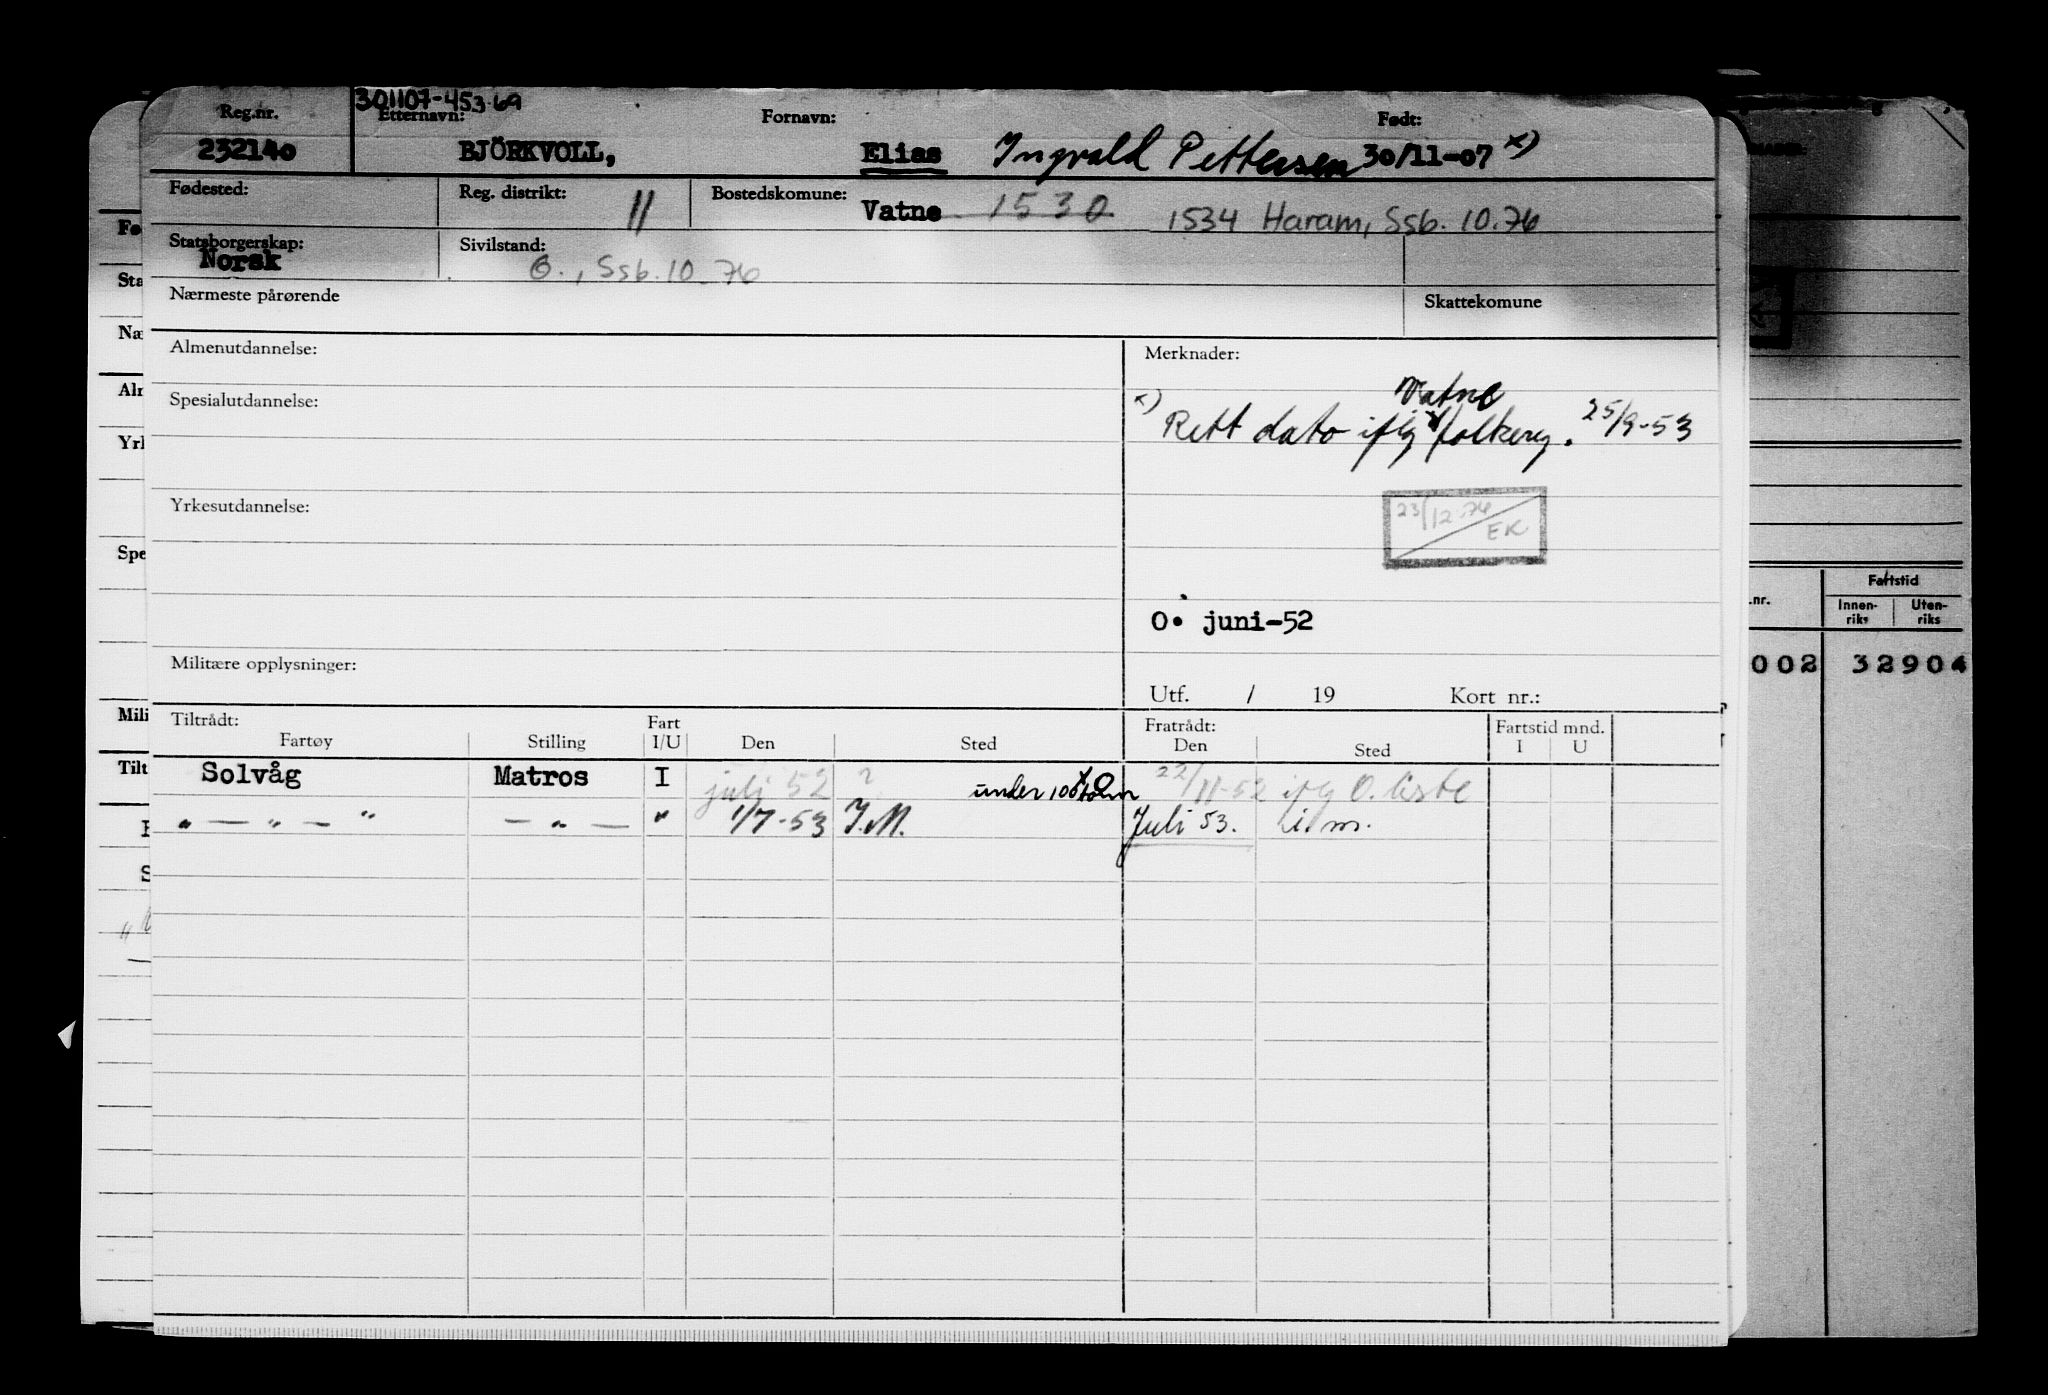 301107-453.69
Reg.nr. Etternavn: Fornavn: Født:
232140 BJÖRKVOLL, Elias Ingvald Pettersen 30/11-07 x)
Fødested: Reg. distrikt: 11 Bostedskomune: Vatne 1530 1534 Haram, Ssb. 10.76
Statsborgerskap: Norsk Sivilstand: G., Ssb. 10.76
Nærmeste pårørende Skattekomune
Almenutdannelse: Merknader:
Vatne
Spesialutdannelse: x) Rett dato iflg folkereg. 25/9-53
Yrkesutdannelse: 23/12.76 EK
O. juni-52
Militære opplysninger:
Utf. / 19 Kort nr.:
Tiltrådt: Fart Fratrådt: Fartstid mnd.
Fartøy Stilling I/U Den Sted Den Sted I U
Solvåg Matros I juli 52 ? under 100 22/11-52 iflg O. liste
" — " — " — " — " 1/7-53 I.M. Juli 53. i.m.
Fø
Sta
Næ
Alr
Yrl
Spe
Mili
Tilt
.nr. Fartstid
Innen-riks Uten-riks
002 32904